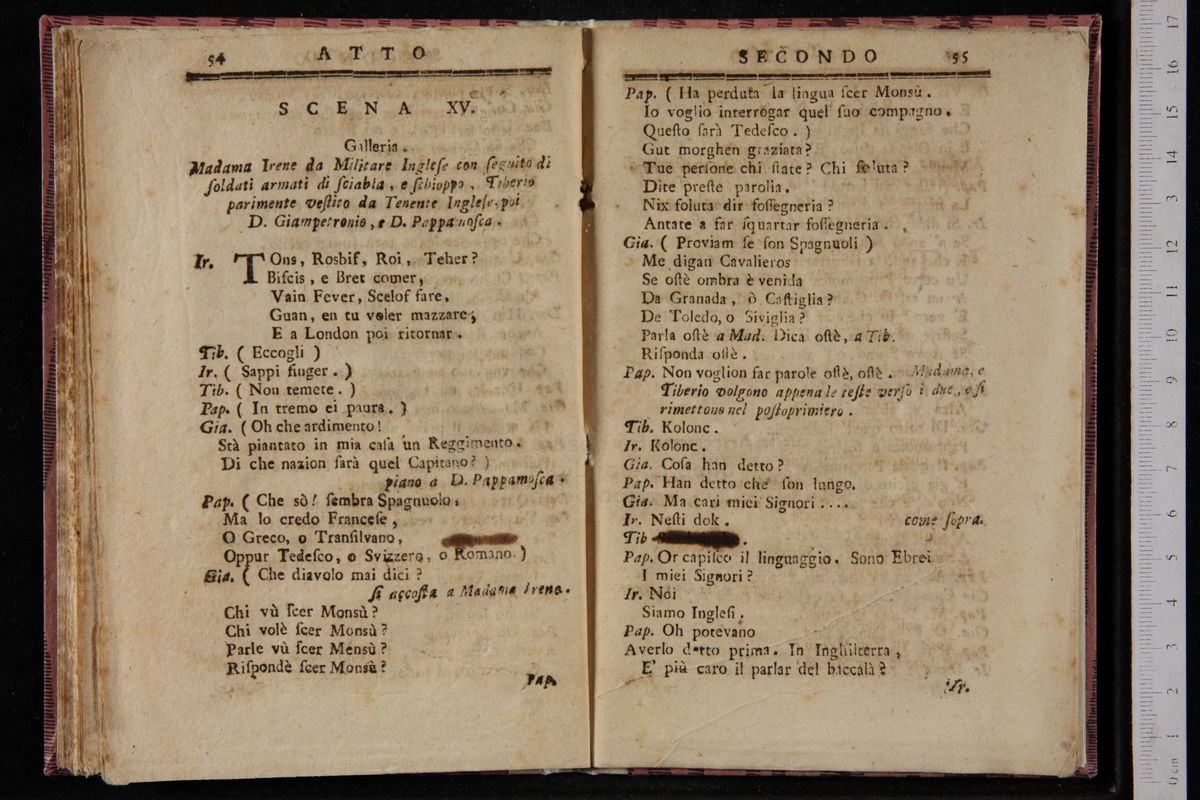 54 ATTO
SCENA XV.
Galleria.
Madama Irene da Militare Ingleſe con ſeguito di
ſoldati armati di ſciabla, e ſchioppo, Tiberio
parimente veſtito da Tenente Ingleſe, poi
D. Giampetronio, e D. Pappamoſca.
Ir. TOns, Rosbif, Roi, Teher?
Biſcis, e Bret comer,
Vain Fever, Scelof fare,
Guan, en tu voler mazzare,
E a London poi ritornar.
Tib. ( Eccogli )
Ir. ( Sappi finger. )
Tib. ( Non temete. )
Pap. ( In tremo ei paura. )
Gia. ( Oh che ardimento!
Stà piantato in mia caſa un Reggimento.
Di che nazion ſarà quel Capitano? )
piano a D. Pappamoſca.
Pap. ( Che sò! ſembra Spagnuolo,
Ma lo credo Franceſe,
O Greco, o Tranſilvano,
Oppur Tedeſco, o Svizzero, o Romano. )
Gia. ( Che diavolo mai dici?
ſi accoſta a Madama Irene.
Chi vù ſcer Monsù?
Chi volè ſcer Monsù?
Parle vù ſcer Mensù?
Riſpondè ſcer Monsù?
Pap.
SECONDO 55
Pap. ( Ha perduta la lingua ſcer Monsù.
Io voglio interrogar quel ſuo compagno.
Queſto ſarà Tedeſco. )
Gut morghen graziata?
Tue perſone chi ſtate? Chi ſoluta?
Dite preſte parolia.
Nix ſoluta dir foſſegneria?
Antate a far ſquartar foſſegneria.
Gia. ( Proviam ſe ſon Spagnuoli )
Me digan Cavalieros
Se oſtè ombra è venida
Da Granada, ò Caſtiglia?
De Toledo, o Siviglia?
Parla oſtè a Mad. Dica oſtè, a Tib.
Riſponda oſtè.
Pap. Non voglion far parole oſtè, oſtè. Madama, e
Tiberio volgono appena le teſte verſo i due, e ſi
rimettono nel poſto primiero.
Tib. Kolonc.
Ir. Kolonc.
Gia. Coſa han detto?
Pap. Han detto che ſon lungo.
Gia. Ma cari miei Signori....
Ir. Neſti dok. come ſopra.
Tib .
Pap. Or capiſco il linguaggio. Sono Ebrei
I miei Signori?
Ir. Noi
Siamo Ingleſi.
Pap. Oh potevano
Averlo detto prima. In Inghilterra,
E' più caro il parlar del baccalà?
Ir.